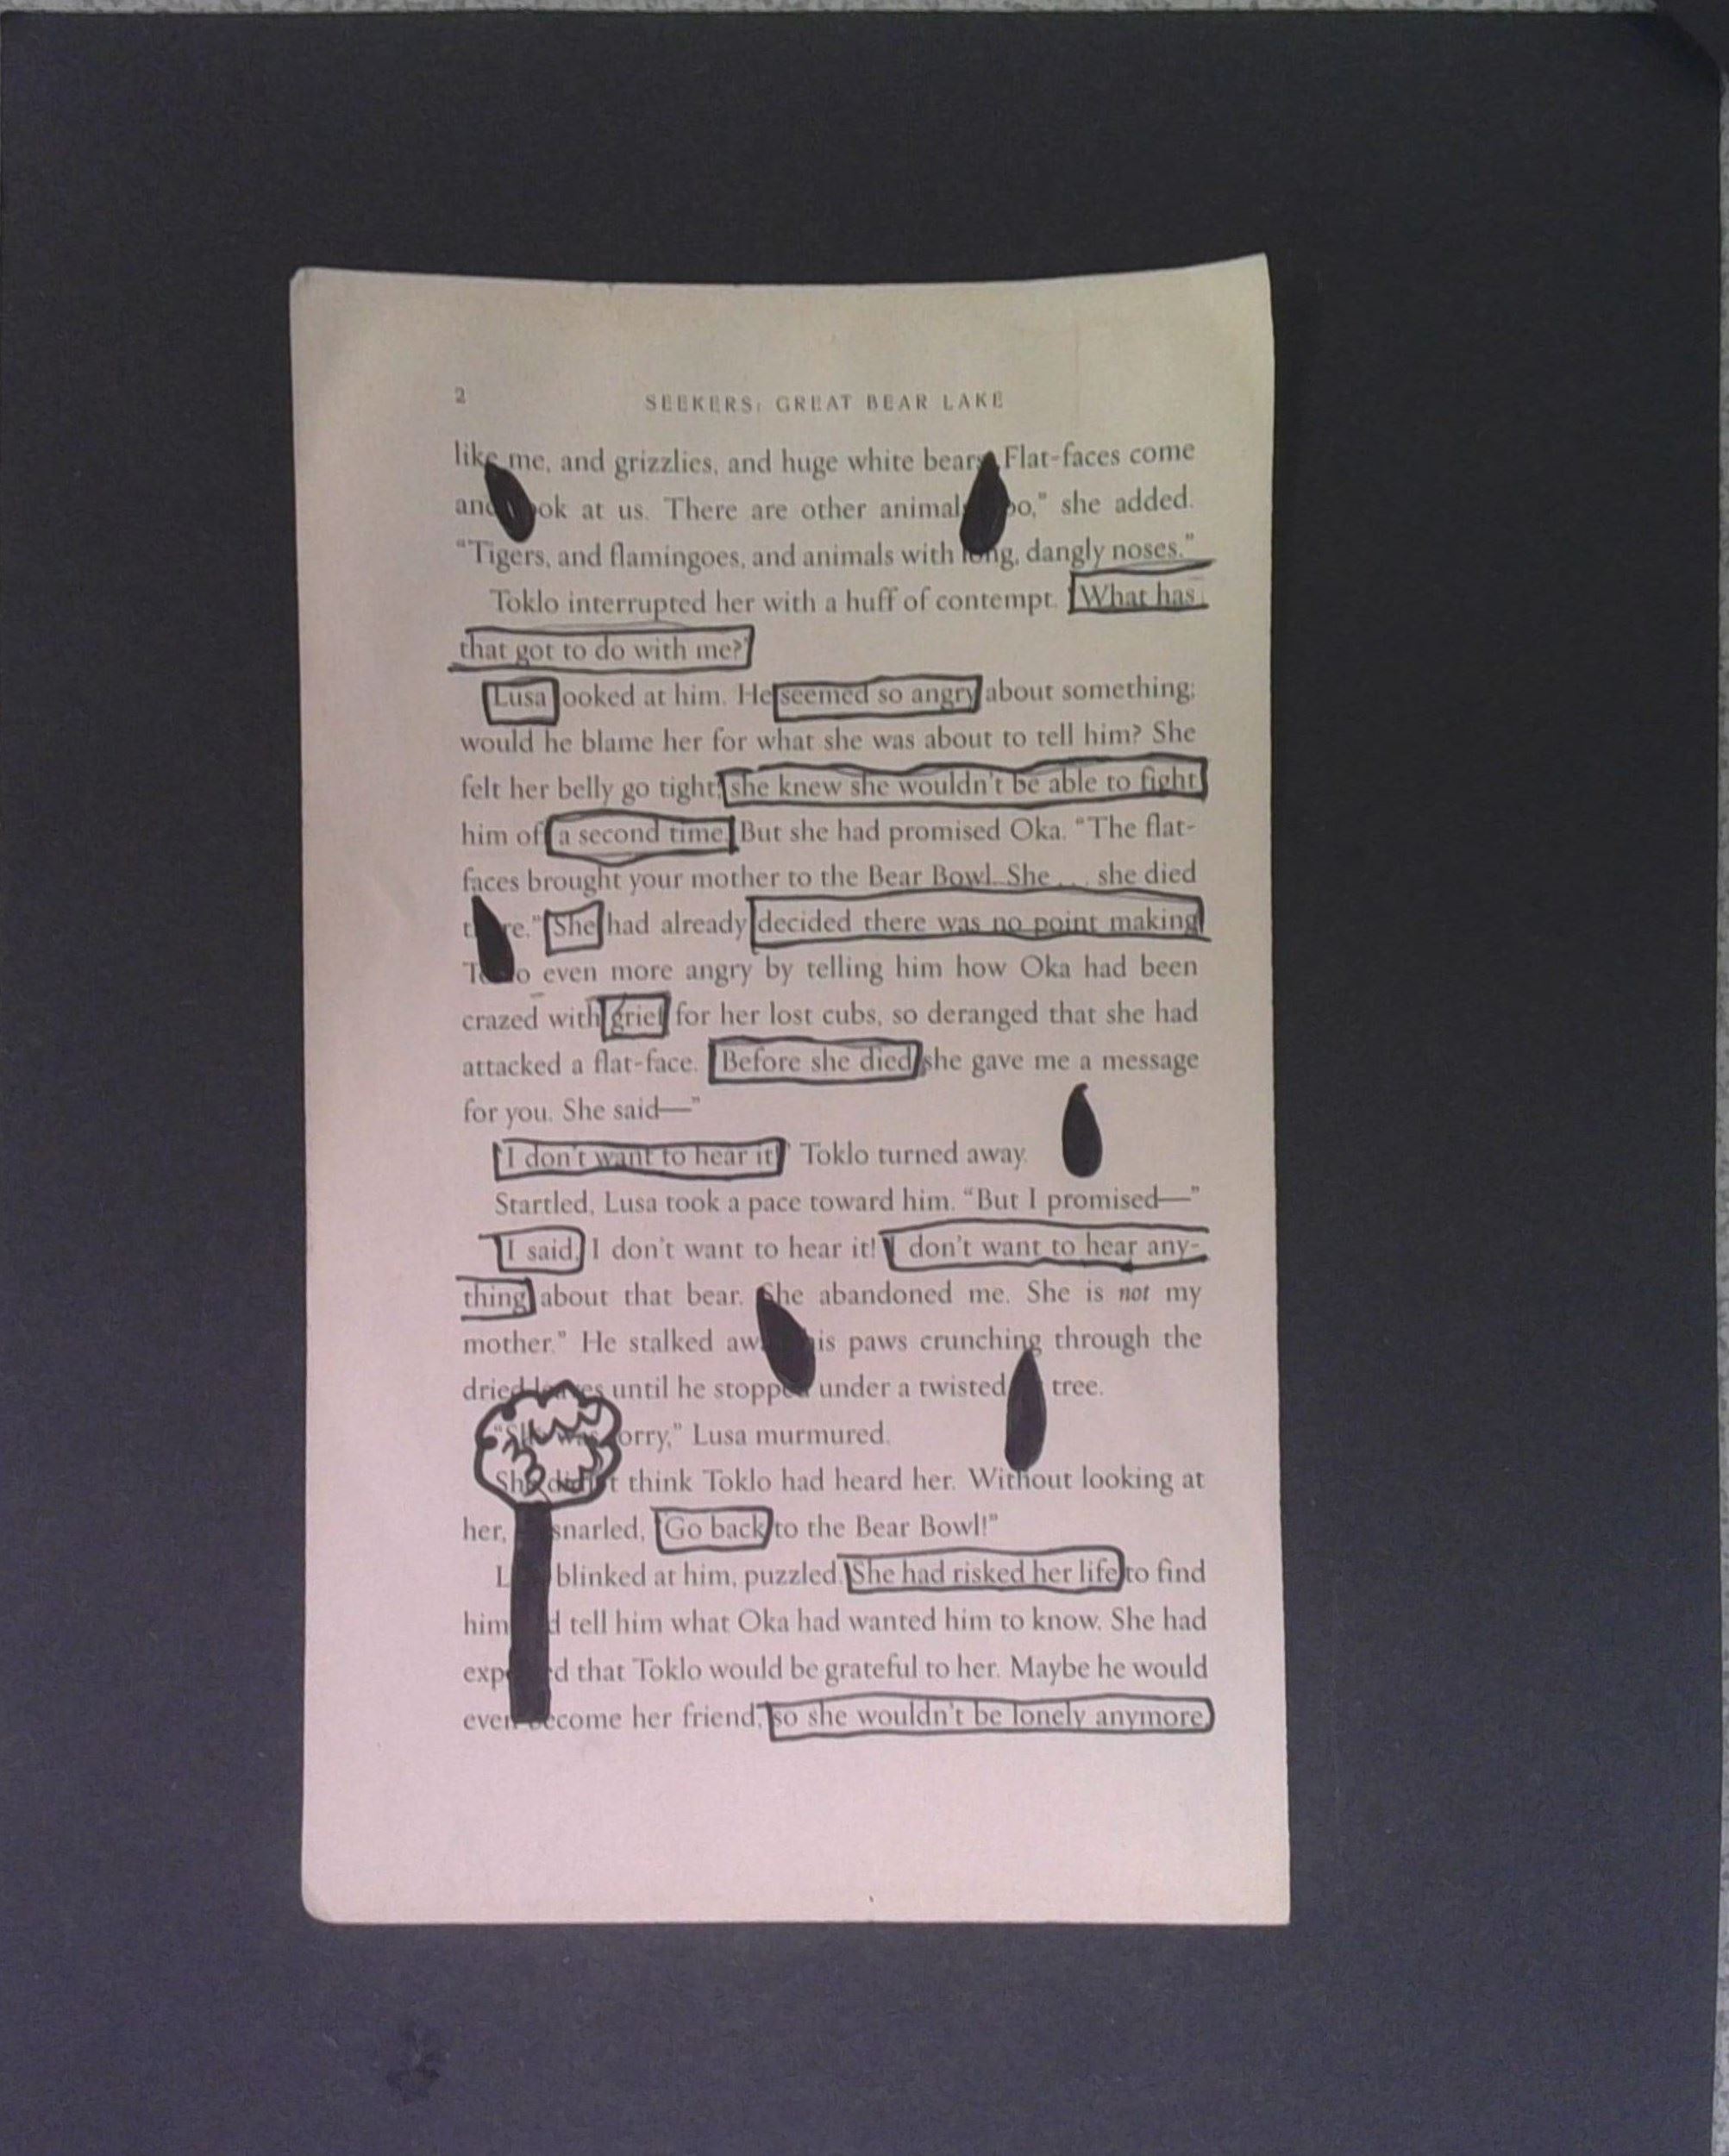 2
SEEKERS: GREAT BEAR LAKE
like me, and grizzlies, and huge white bears. Flat-faces come
and ok at us. There are other animals o,” she added.
“Tigers, and flamingoes, and animals with long, dangly noses.”
Toklo interrupted her with a huff of contempt. What has
that got to do with me?”
Lusa ooked at him. He seemed so angry about something;
would he blame her for what she was about to tell him? She
felt her belly go tight; she knew she wouldn't be able to fight
him of a second time. But she had promised Oka. “The flat-
faces brought your mother to the Bear Bowl. She . . . she died
t re.” She had already decided there was no point making
T o even more angry by telling him how Oka had been
crazed with grief for her lost cubs, so deranged that she had
attacked a flat-face. Before she died she gave me a message
for you. She said—”
I don't want to hear it” Toklo turned away.
Startled, Lusa took a pace toward him. “But I promised—”
I said, I don't want to hear it! I don't want to hear any-
thing about that bear. She abandoned me. She is not my
mother.” He stalked aw is paws crunching through the
dried leaves until he stopped under a twisted tree.
“She was orry,” Lusa murmured.
She didn't think Toklo had heard her. Without looking at
her, snarled, Go back to the Bear Bowl!”
L blinked at him, puzzled. She had risked her life to find
him d tell him what Oka had wanted him to know. She had
exp d that Toklo would be grateful to her. Maybe he would
even become her friend, so she wouldn't be lonely anymore.